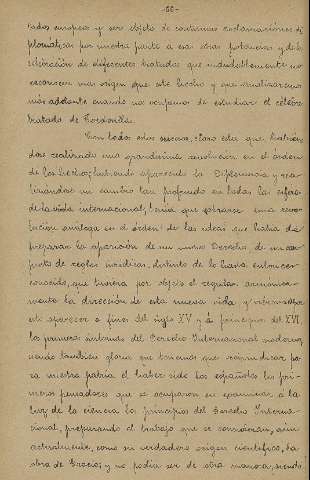 -66-
tados europeos y ser objeto de continuas reclamaciones di
plomáticas por nuestra parte a esas otras potencias y de la
celebración de diferentes tratados que indudablemente no
reconocen más origen que este hecho y que analizaremos
más adelante cuando nos ocupemos de estudiar el célebre
tratado de Tordesillas.
Con todos estos sucesos, claro está que habién
dose realizado una grandísima revolución en el órden
de los hechos; habiendo aparecido la Diplomacia y rea
lizándose un cambio tan profundo en todas las esferas
de la vida internacional, tenía que obrarse una revo
lución análoga en el órden de las ideas que había de
preparar la aparición de un nuevo Derecho, de un con
junto de reglas jurídicas, distinto de lo hasta entonces
conocido, que tuviera por objeto el regular armónica
mente la dirección de esta nueva vida y
este aparecer a fines del siglo XV y á principios del XVI,
los primeros de Derecho Internacional moderno,
siendo también gloria que tenemos que reivindicar pa
ra nuestra patria el haber sido los españoles los pri
meros pensadores que se ocuparon en examinar a la
luz de la ciencia los principios del Derecho Interna
cional, preparando el trabajo que se consideran, aún
actualmente, como su verdadero origen científico, la
obra de Grocio; y no podía ser de otra manera, siendo